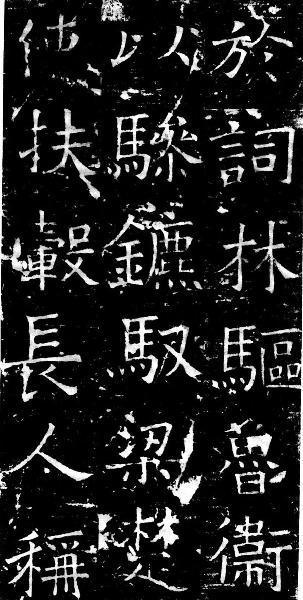 於詞林驅魯衛
以驂鑣馭梁楚
使扶轂長稱